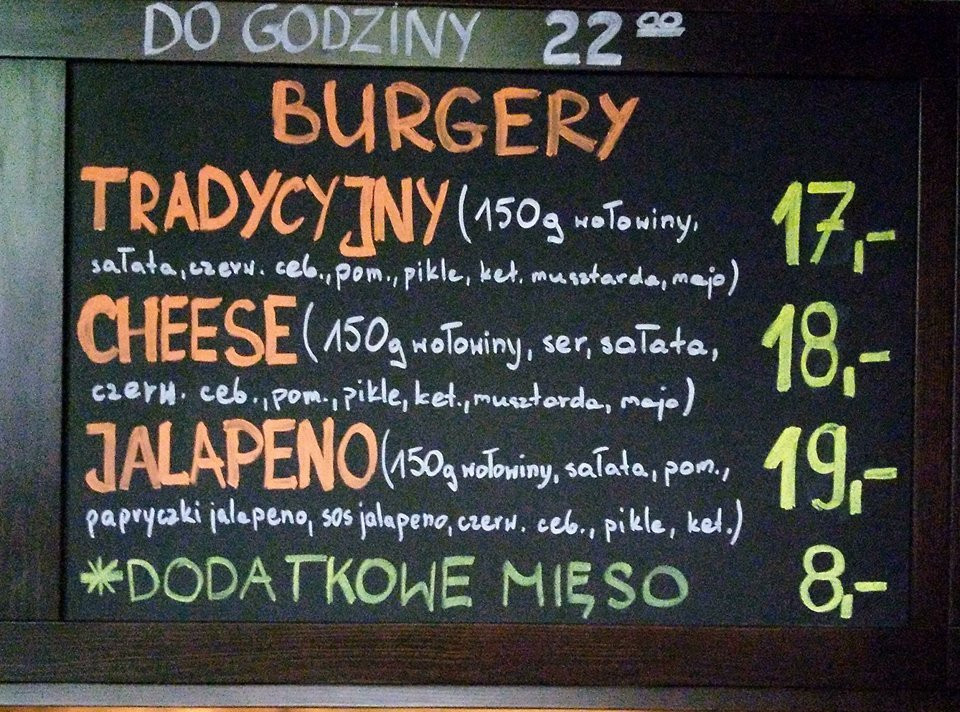 DO GODZINY 22 00
BURGERY
TRADYCYJNY (150g wołowiny, 17,-
sałata, czerw. ceb., pom., pikle, ket. musztarda, majo)
CHEESE (150g wołowiny, ser, sałata, 18,-
czerw. ceb., pom., pikle, ket., musztarda, majo)
JALAPENO (150g wołowiny, sałata, pom., 19,-
papryczki jalapeno, sos jalapeno, czerw. ceb., pikle, ket.)
*DODATKOWE MIĘSO 8,-